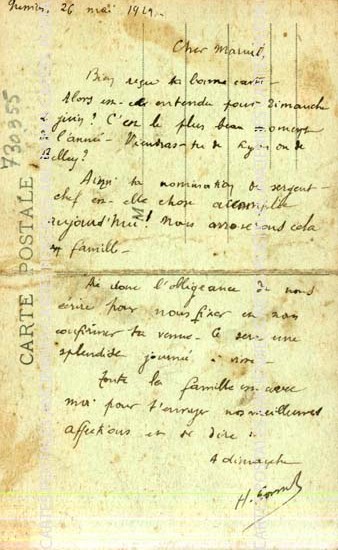 26 mai 1929.
Cher Marcel,
Bien reçu ta bonne carte.
Alors c'est entendu pour dimanche
2 juin ? C'est le plus beau moment
de l'année. Viendras-tu de Lyon ou de
Belley ?
Ainsi ta nomination de sergent-
chef est-elle chose accomplie
aujourd'hui ! Nous arroserons cela
en famille.
Aie donc l'obligeance de nous
écrire pour nous fixer et nous
confirmer ta venue. Ce sera une
splendide journée à vivre.
Toute la famille est avec
moi pour t'envoyer nos meilleures
affections et te dire :
A dimanche
H.
CARTE POSTALE
730355